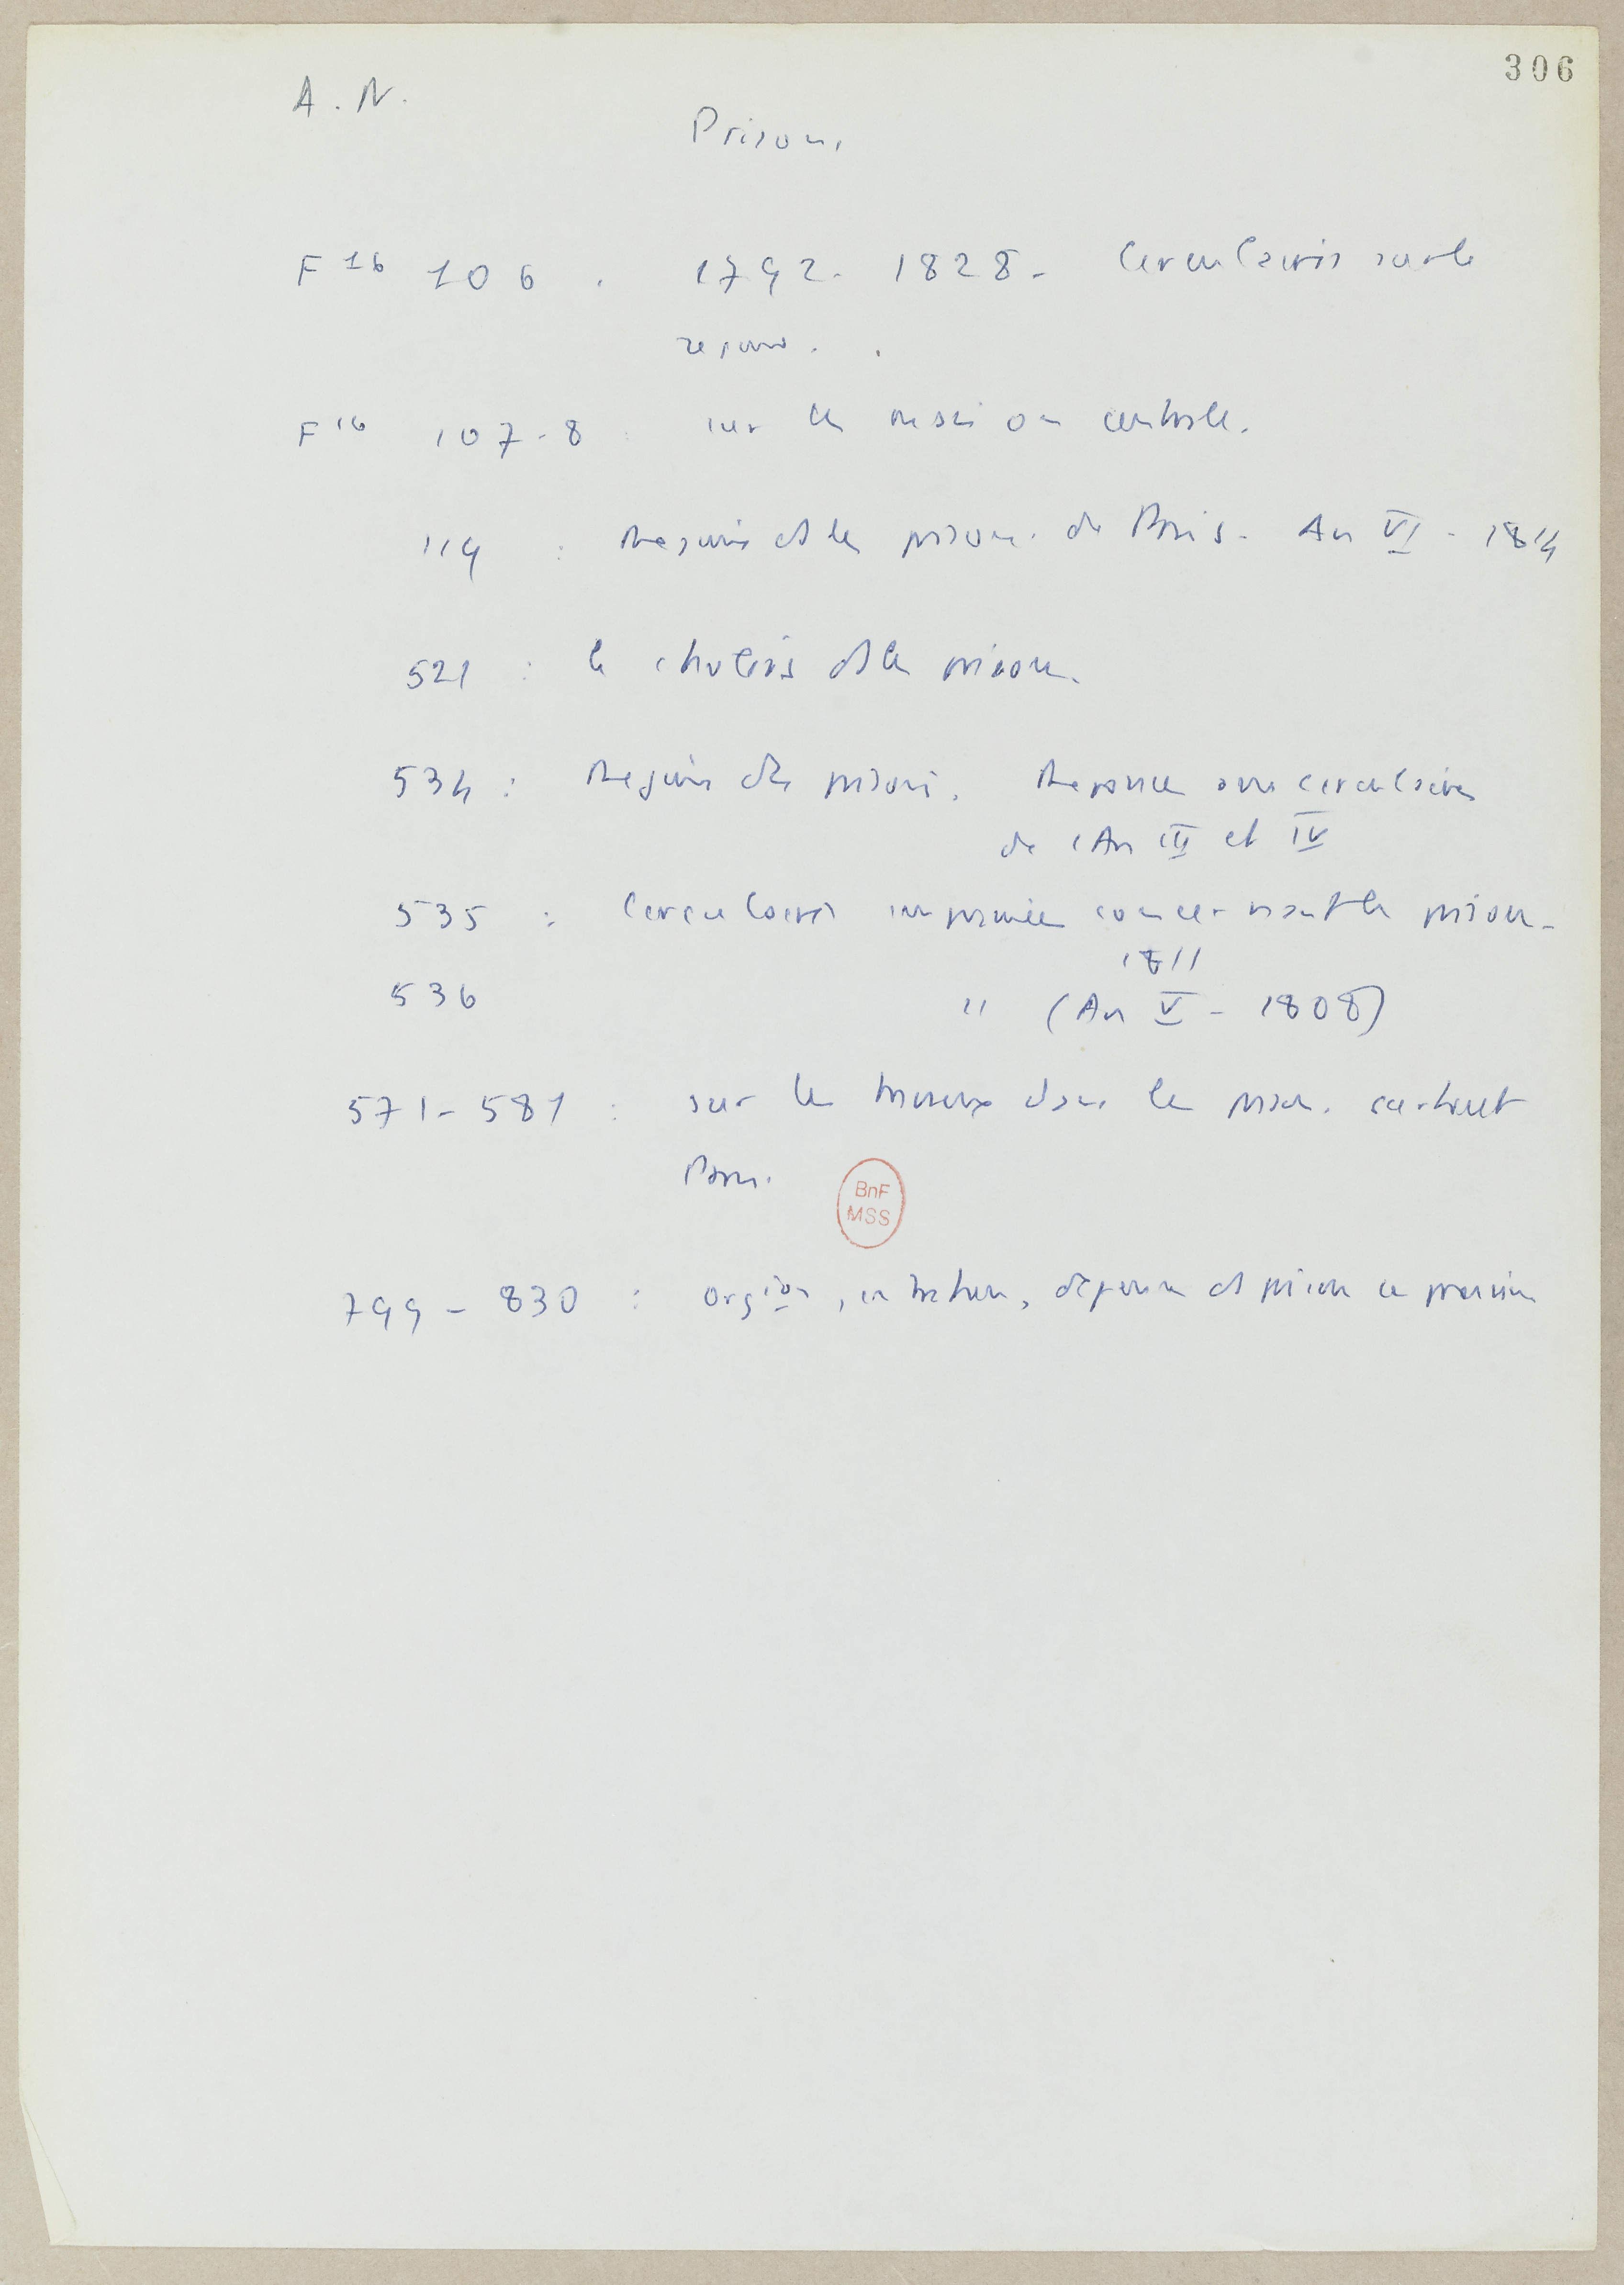 306
A. N.
Prisons
F 16 106 . 1792 - 1828 - Circulaires sur le
régime .
F 16 107-8 : sur les maisons centrales.
119 : Régime des prisons de Paris - An VI - 1814
521 : le choléra ds les prisons.
534 : Régime des prisons. Réponses aux circulaires
de l'An III et IV
535 : Circulaires imprimées concernant les prisons -
1811
536 " (An V - 1808)
571 - 581 : sur les travaux dans les prisons. surtout
Paris.
BnF
MSS
799 - 830 : orgion, entretien, dépenses ds prisons